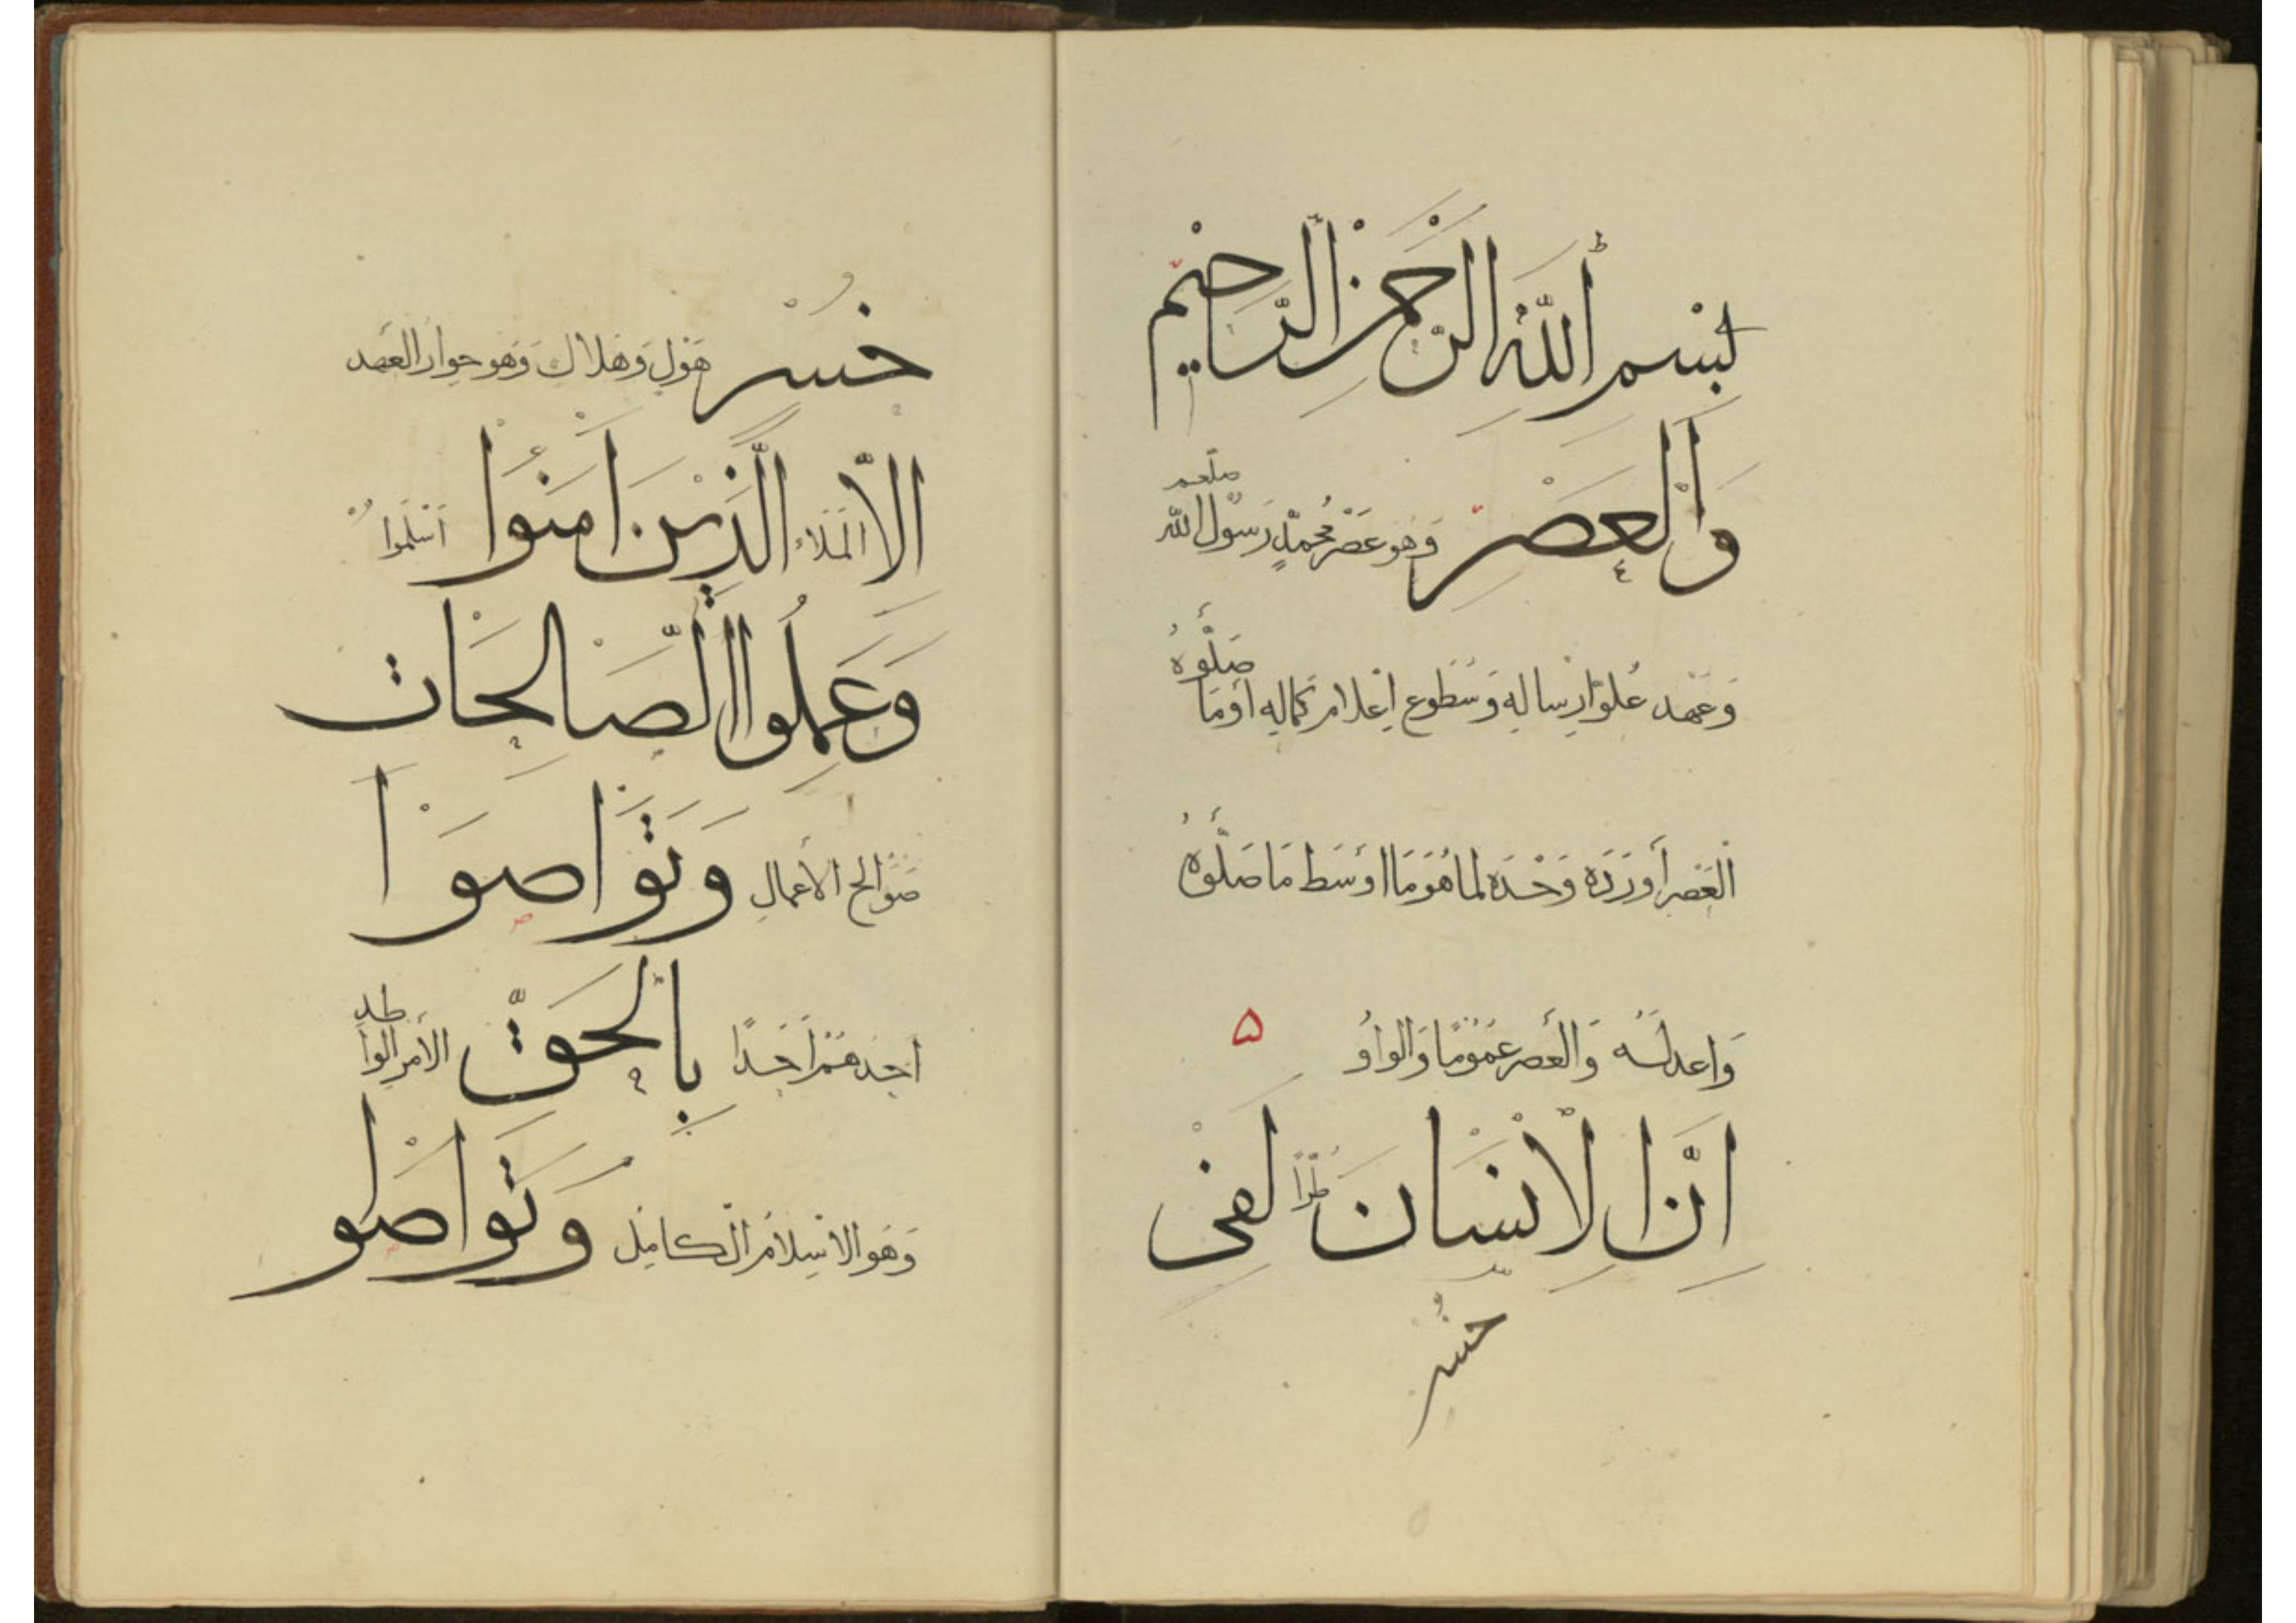 بِسْمِ اللَّهِ الرَّحْمَنِ الرَّحِيمِ
صلعم
وَالْعَصْرِ وَهُوَ عَصْرُ مُحَمَّدٍ رَسُولُ اللّٰه
صَلُّوهُ
وَعَهْد عُلُوِّ ارْسَالِهِ وَسُطُوعِ اِعْلَام كَمَالِهِ أَوْمَا
الْعَصْر أَوْرَدَهُ وَحْدَهُ لِمَا هُوَ مَا اَوْسَط مَا صَلُّوهُ
وَاعدله وَالْعَصْر عُمُومًا وَالواوُ ۵
اِنَّ الْاِنْسَانَ طُرًّا لَفِى
خُسْر
خُسْرٍ هَوْلٍ وَهَلَاكٍ وَهُوَ حِوَار العَهد
اِلَّا الْمَلَاءُ الَّذِيْنَ اٰمَنُوْا اَسْلَمُوا
وَعَمِلُوا الصَّالِحَاتِ
صَوَالِح الْأَعْمَالِ وَتَوَاصَوْا
اَحَدهُمْ اَحَدًا بِالْحَقِّ الْأَمْر الْوَاطد
وَهُوَ الْاِسْلَامُ الْكَامِل وَتَوَاصَو